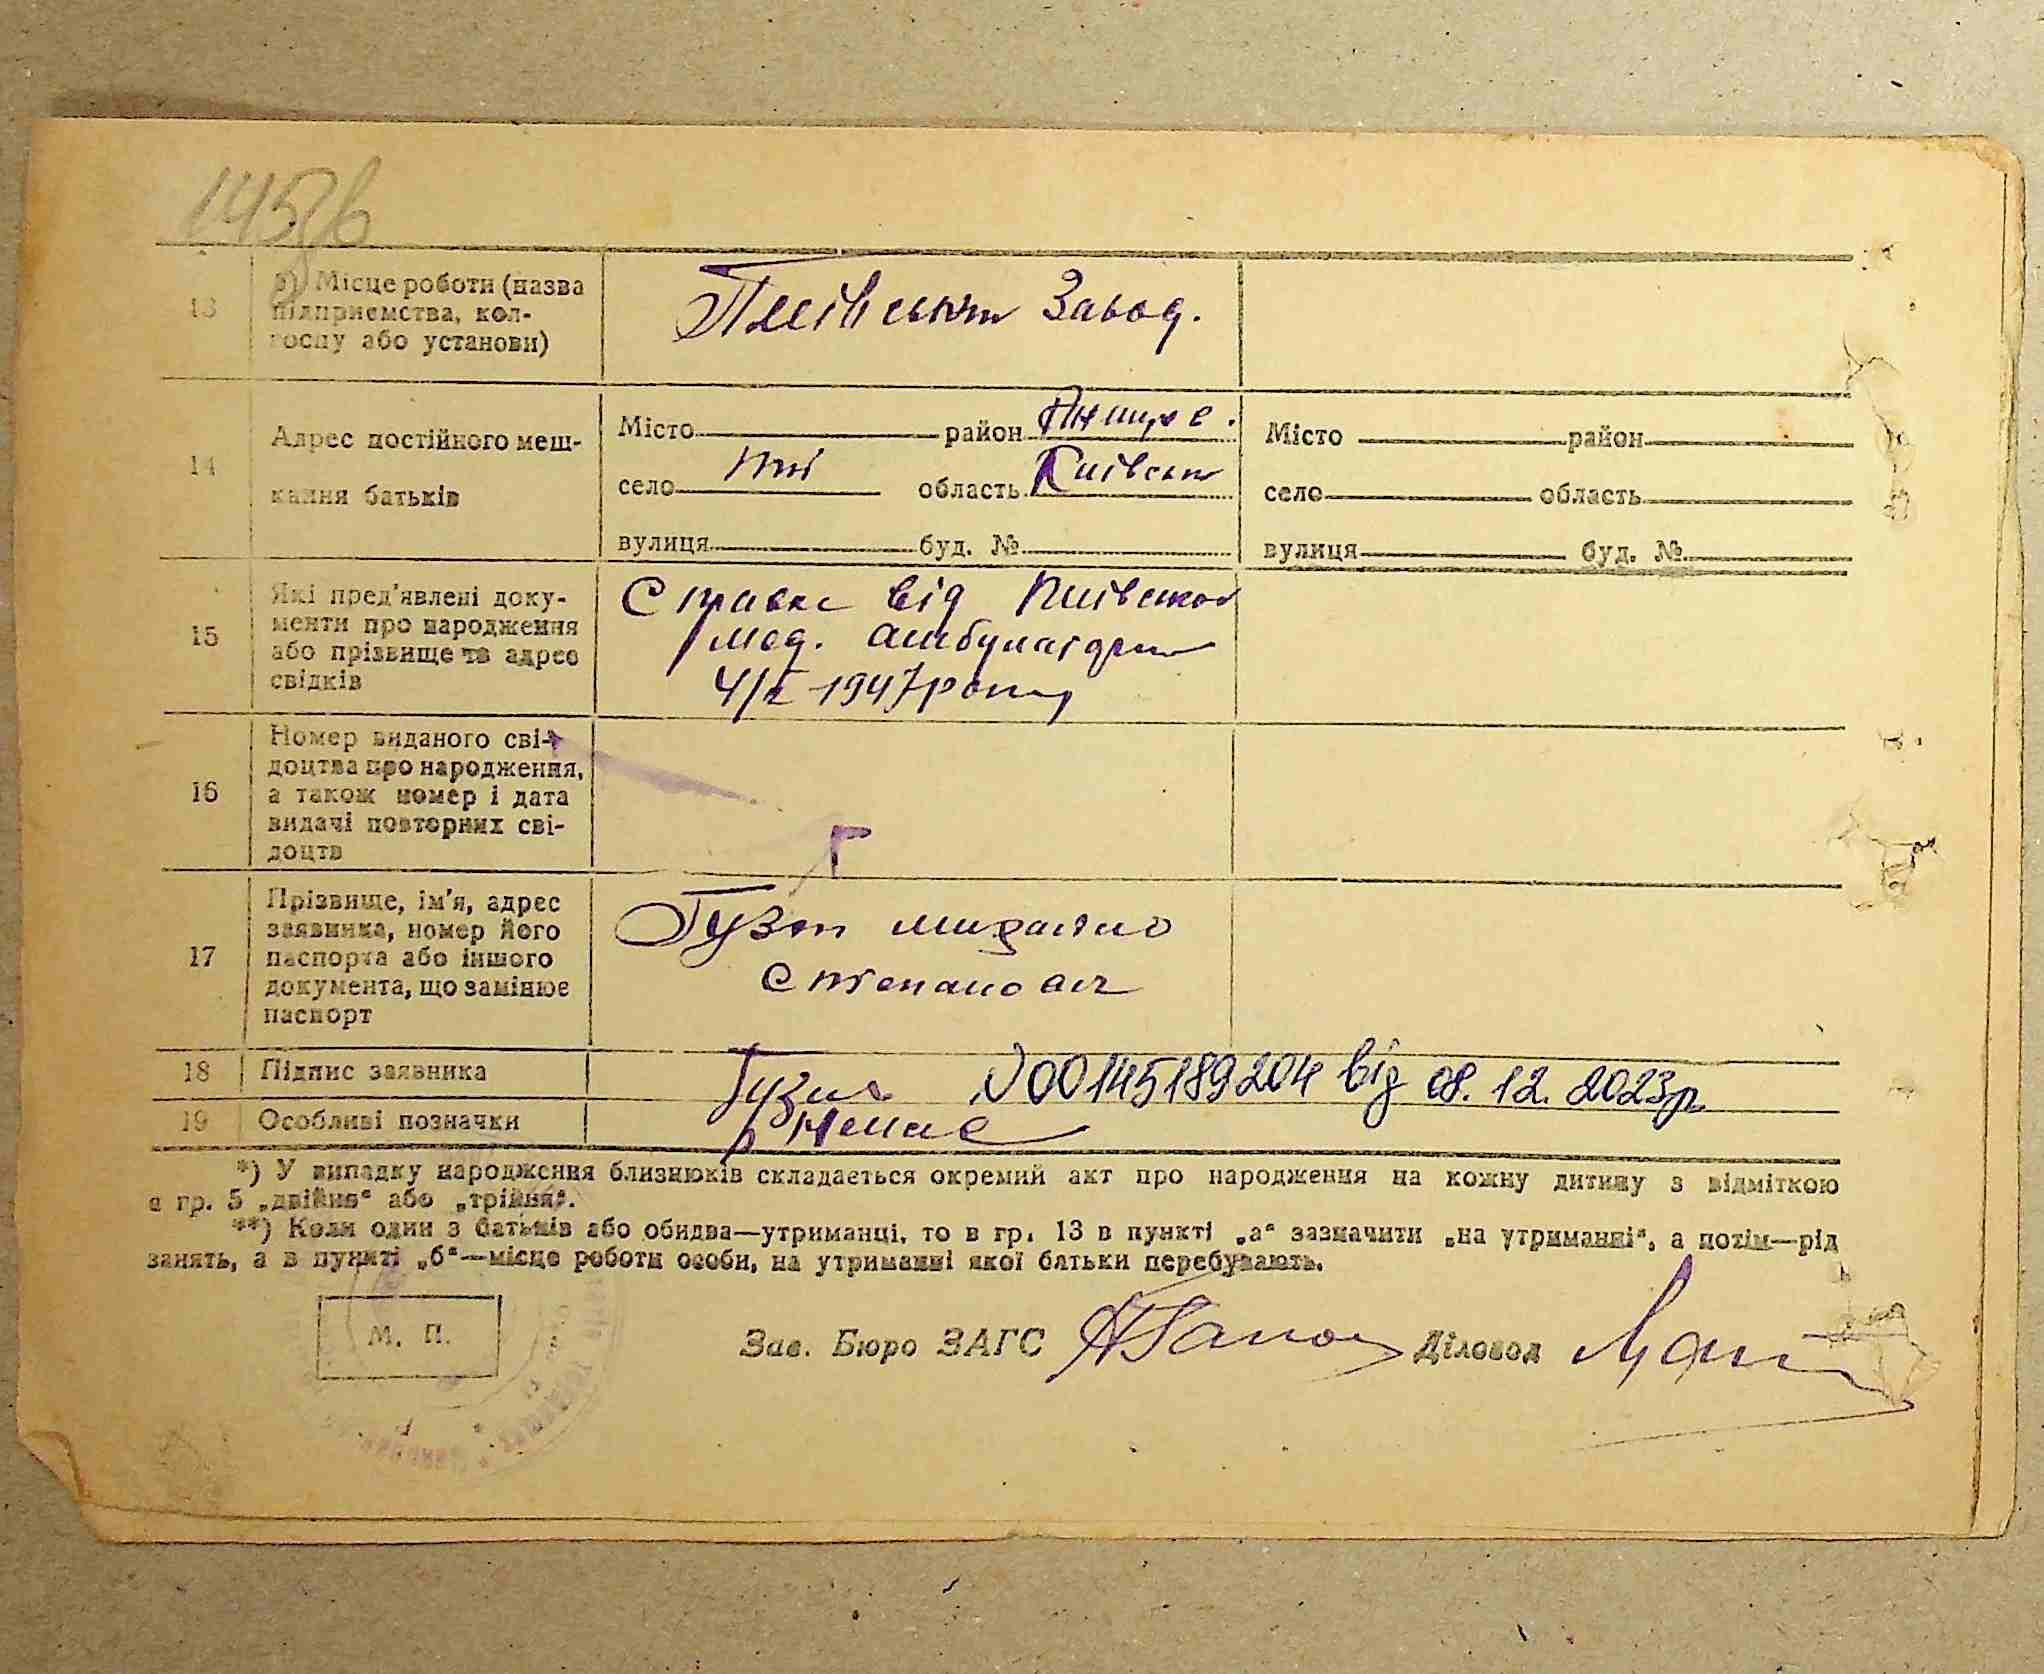 145 зв
13 б) Місце роботи (назва
підприємства, кол-
госпу або установи)
Завод.
14 Адрес постійного меш-
кання батьків
Місто район
село область Київськ
вулиця буд. №
Місто район
село область
вулиця буд. №
15 Які пред'явлені доку-
менти про народження
або прізвище та адрес
свідків
Справка від
мед. амбулатории
4/І 1947 року
16 Номер виданого сві-
доцтва про народження,
а також номер і дата
видачі повторних сві-
доцтв
17 Прізвище, ім'я, адрес
заявника, номер його
паспорта або іншого
документа, що замінює
паспорт
Гузь михайло
Степанович
18 Підпис заявника
№00145189204 від 08.12.2023р.
19 Особливі позначки
Немає
*) У випадку народження близнюків складається окремий акт про народження на кожну дитину з відміткою
в гр. 5 „двійня“ або „трійня“.
**) Коли один з батьків або обидва—утриманці, то в гр. 13 в пункті „а“ зазначити „на утриманні“, а потім—рід
занять, а в пункті „б“—місце роботи особи, на утриманні якої батьки перебувають.
М. П.
Зав. Бюро ЗАГС Діловод